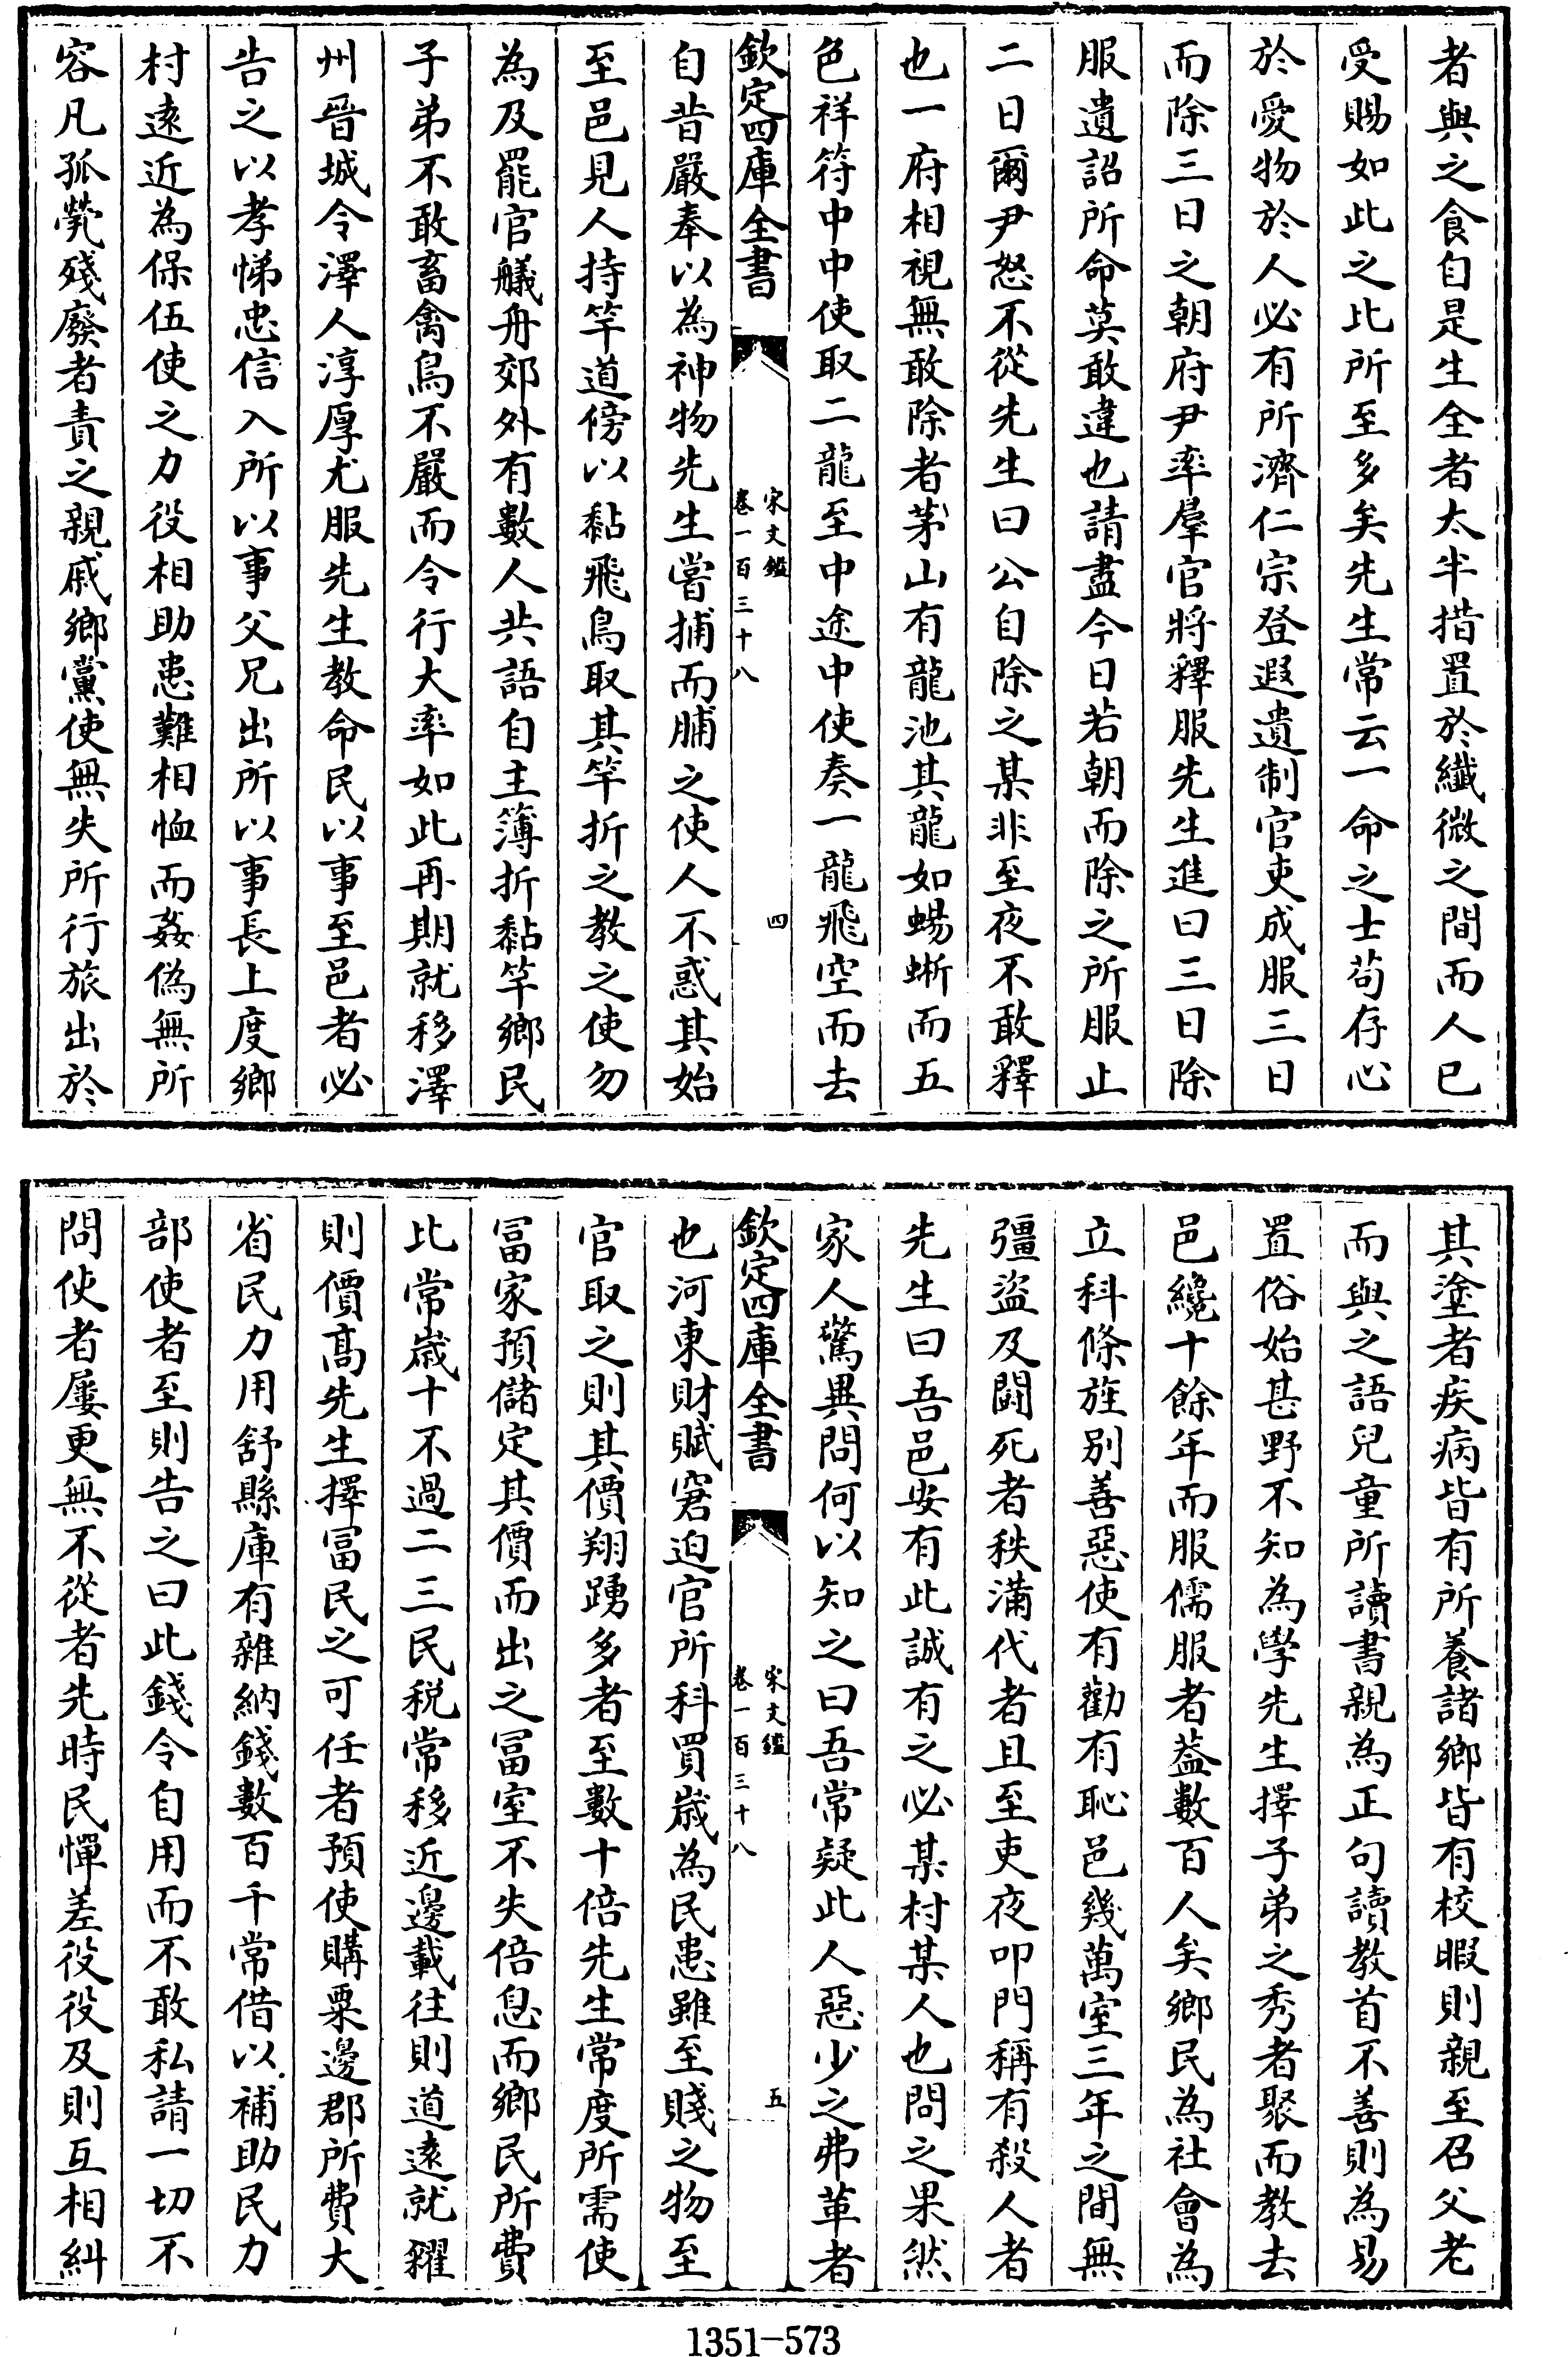 者與之食自是生全者太半措置於纖微之間而人已
受賜如此之比所至多矣先生常云一命之士苟存心
於愛物於人必有所濟仁宗登遐遺制官吏成服三日
而除三日之朝府尹率羣官將釋服先生進曰三日除
服遺詔所命莫敢違也請盡今日若朝而除之所服止
二日爾尹怒不從先生曰公自除之某非至夜不敢釋
也一府相視無敢除者茅山有龍池其龍如蜴蜥而五
色祥符中中使取二龍至中途中使奏一龍飛空而去
欽定四庫全書
宋文鑑
卷一百三十八
四
自昔嚴奉以為神物先生嘗捕而脯之使人不惑其始
至邑見人持竿道傍以黏飛鳥取其竿折之教之使勿
為及罷官艤舟郊外有數人共語自主簿折黏竿鄉民
子弟不敢畜禽鳥不嚴而令行大率如此再期就移澤
州晉城令澤人淳厚尤服先生教命民以事至邑者必
告之以孝悌忠信入所以事父兄出所以事長上度鄉
村遠近為保伍使之力役相助患難相恤而姦偽無所
容凡孤煢殘廢者責之親戚鄉黨使無失所行旅出於
其塗者疾病皆有所養諸鄉皆有校暇則親至召父老
而與之語兒童所讀書親為正句讀教首不善則為易
置俗始甚野不知為學先生擇子弟之秀者聚而教去
邑纔十餘年而服儒服者葢數百人矣鄉民為社會為
立科條旌別善惡使有勸有恥邑幾萬室三年之間無
彊盜及鬪死者秩滿代者且至吏夜叩門稱有殺人者
先生曰吾邑安有此誠有之必某村某人也問之果然
家人驚異問何以知之曰吾常疑此人惡少之弗革者
欽定四庫全書
宋文鑑
卷一百三十八
五
也河東財賦窘迫官所科買歲為民患雖至賤之物至
官取之則其價翔踴多者至數十倍先生常度所需使
冨家預儲定其價而出之冨室不失倍息而鄉民所費
比常歲十不過二三民稅常移近邊載往則道遠就糴
則價髙先生擇冨民之可任者預使購粟邊郡所費大
省民力用舒縣庫有雜納錢數百千常借以補助民力
部使者至則告之曰此錢令自用而不敢私請一切不
問使者屢更無不從者先時民憚差役役及則互相糾
1351-573